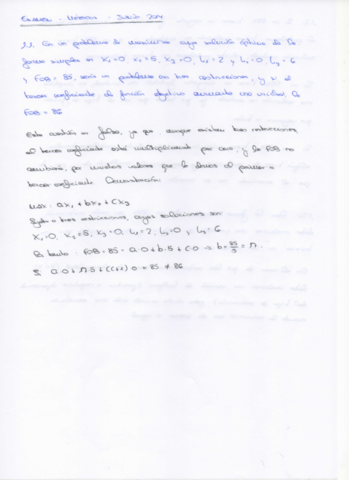 Examen - Métodos - Junio 2014
1.1. En un problema de maximizar cuya solución óptima de la
forma simplex es X₁=0, X₂=5, X₃=0, h₁=2, h₂=0, h₃=6
y FOB = 85, sería un problema con tres restricciones, y si el
tercer coeficiente de función objetivo aumenta una unidad, la
FOB = 86
Esta cuestión es falsa, ya que aunque existan tres restricciones,
el tercer coeficiente está multiplicando por cero, y la FOB no
cambiará, por muchos valores que le demos al
tercer coeficiente. Demostración:
Max: aX₁ + bX₂ + CX₃
Sujeto a tres restricciones, cuyas soluciones son:
X₁=0, X₂=5, X₃=0, h₁=2, h₂=0 y h₃=6
Por tanto: FOB = 85 = a·0 + b·5 + c·0 → b = 85/5 = 17.
Si a·0 + 17·5 + (c+1)·0 = 85 ≠ 86